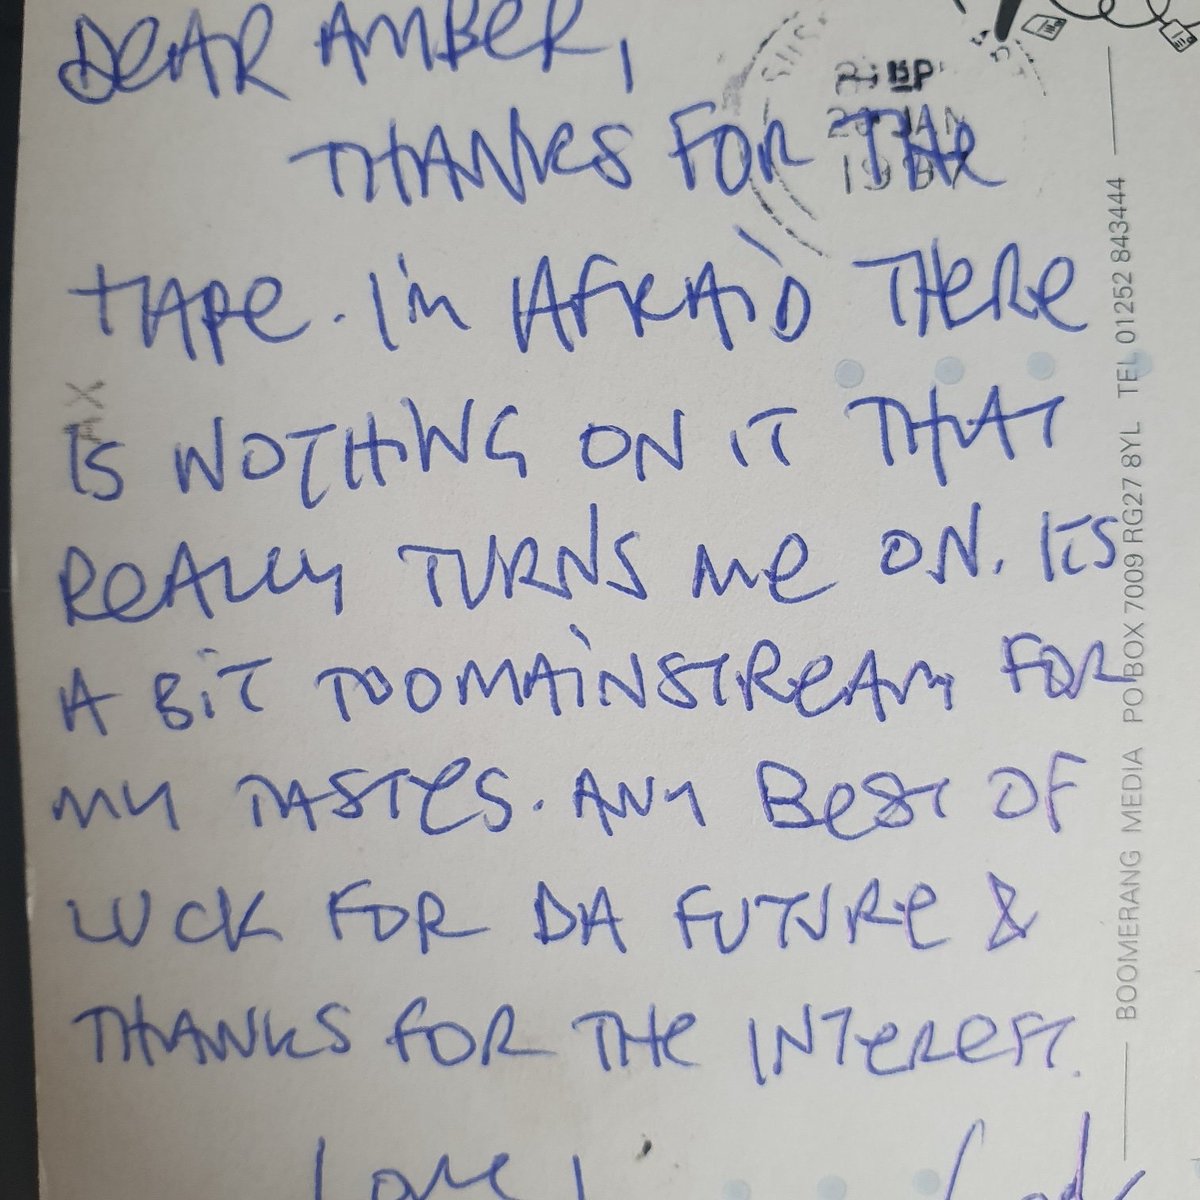 DEAR AMBER,
THANKS FOR THE
TAPE. I'm AFRAID THERE
IS NOTHING ON IT THAT
REALLY TURNS me ON. ITS
A BIT TOO MAINSTREAM FOR
MY TASTES. ANY BEST OF
LUCK FOR DA FUTURE &
THANKS FOR THE INTEREST.
Love,
BOOMERANG MEDIA PO BOX 7009 RG27 8YL TEL 01252 843444